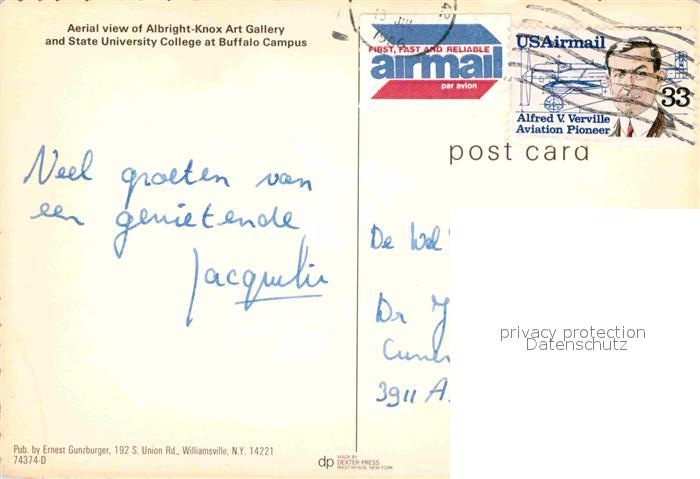 Aerial view of Albright-Knox Art Gallery
and State University College at Buffalo Campus
FIRST, FAST AND RELIABLE
airmail
par avion
USAirmail
33
Alfred V. Verville
Aviation Pioneer
post card
Veel groeten van
een genietende
De Wel
Dr J
3911 A
privacy protection
Datenschutz
Pub. by Ernest Gunzburger, 192 S. Union Rd., Williamsville, N.Y. 14221
74374-D
dp
MADE BY
DEXTER PRESS
WEST NYACK, NEW YORK